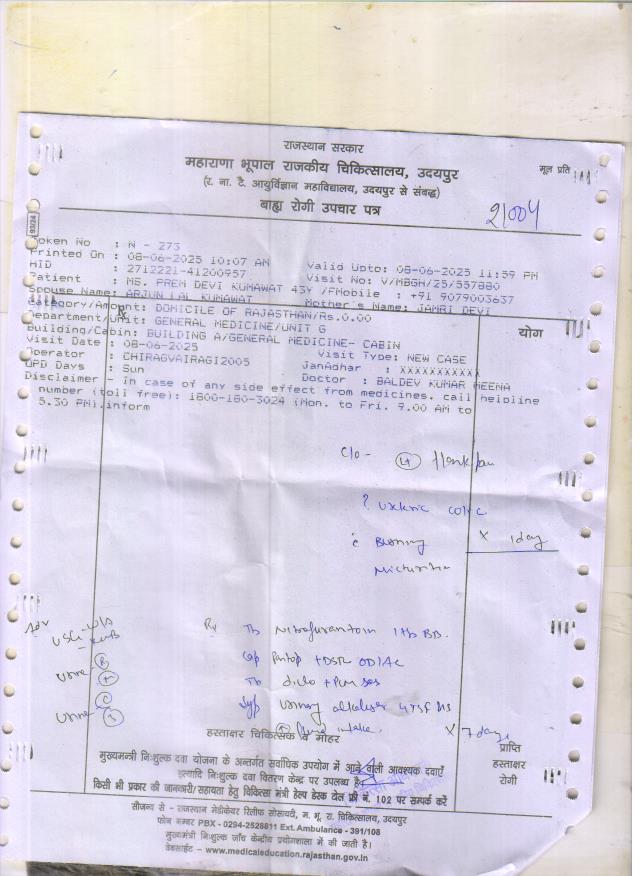 राजस्थान सरकार
महाराणा भूपाल राजकीय चिकित्सालय, उदयपुर
मूल प्रति
(र. ना. टै. आयुर्विज्ञान महाविद्यालय, उदयपुर से संबद्ध)
बाह्य रोगी उपचार पत्र
21004
93/24
Token No : N - 273
Printed On : 08-06-2025 10:07 AM Valid Upto: 08-06-2025 11:59 PM
HID : 2712221-41200957 Visit No: V/MBGH/25/557880
Patient : MS. PREM DEVI KUMAWAT 43Y /F Mobile : +91 9079003637
Spouse Name: ARJUN LAL KUMAWAT Mother's Name: JAMRI DEVI
Category/Amount: DOMICILE OF RAJASTHAN/Rs.0.00
Rx
योग
Department/Unit: GENERAL MEDICINE/UNIT G
Building/Cabin: BUILDING A/GENERAL MEDICINE- CABIN
Visit Date : 08-06-2025 Visit Type: NEW CASE
Operator : CHIRAGVAIRAGI2005 JanAdhar : XXXXXXXXXXX
OPD Days : Sun Doctor : BALDEV KUMAR MEENA
Disclaimer - In case of any side effect from medicines, call helpline
number (toll free): 1800-180-3024 (Mon. to Fri. 9.00 AM to
5.30 PM).inform
C/o - (Lt) flank pain
? Ureteric colic
c Burning X 1 day
Micturition
Adv
USG - W/A
- KUB
Urine (R)
(M)
Urine (C)
(S)
Rx Tb Nitrofurantoin 1 tb BD.
Cap Pantop + DSR OD/AC
Tb diclo + PCM SOS
Syp Urinary alkaliser 4 TSF
fluid intake. X 7 days
हस्ताक्षर चिकित्सक व मोहर
प्राप्ति
हस्ताक्षर
रोगी
मुख्यमन्त्री निःशुल्क दवा योजना के अन्तर्गत सर्वाधिक उपयोग में आने वाली आवश्यक दवाएँ
इत्यादि निःशुल्क दवा वितरण केन्द्र पर उपलब्ध है
किसी भी प्रकार की जानकारी/सहायता हेतु चिकित्सा मंत्री हेल्प डेस्क टोल फ्री नं. 102 पर सम्पर्क करें
सौजन्य से - राजस्थान मेडीकेयर रिलीफ सोसायटी, म. भू. रा. चिकित्सालय, उदयपुर
फोन नम्बर PBX - 0294-2528811 Ext. Ambulance - 391/108
मुख्यमंत्री निःशुल्क जाँच केन्द्रीय प्रयोगशाला में की जाती है।
वेबसाईट - www.medicaleducation.rajasthan.gov.in